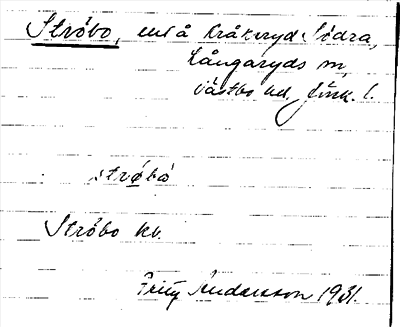 Ströbo, ent å Kråkeryd Södra,
Långaryds sn,
Västbo hd, Jönk. l.
strøbo
Ströbo kv.
Fritz Andersson 1931.